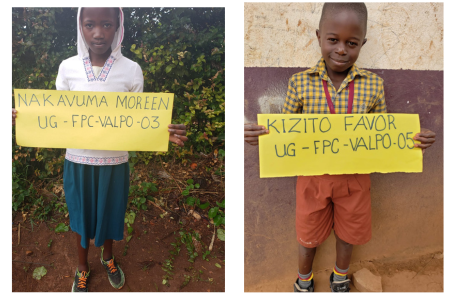 NAKAVUMA MOREEN
UG-FPC-VALPO-03
KIZITO FAVOR
UG-FPC-VALPO-05